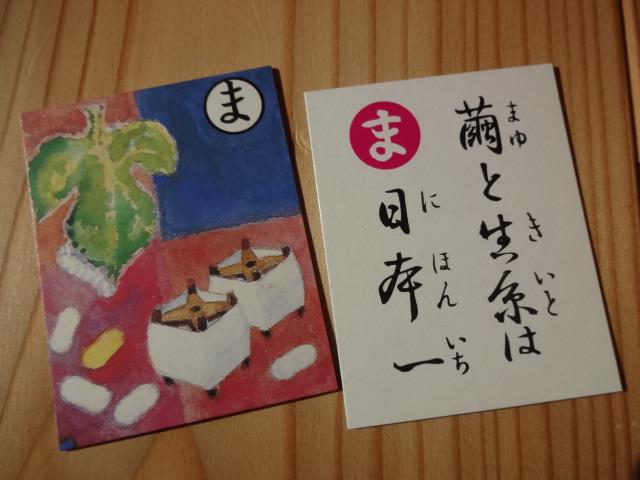 ま
ま
繭と生糸は
まゆ
きいと
日本一
にほんいち